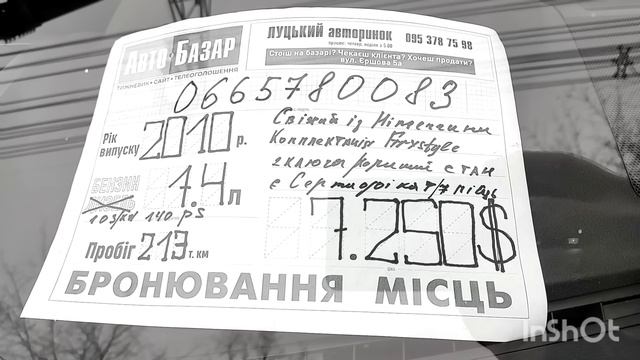 АВТО БАЗАР
ТИЖНЕВИК • САЙТ • ТЕЛЕОГОЛОШЕННЯ
ЛУЦЬКИЙ авторинок 095 378 75 98
Стоїш на базарі? Чекаєш клієнта? Хочеш продати?
вул. Єршова 5а
0665780083
Рік випуску 2010 р.
Свіжий із Німеччини
Комплектація
2 ключа стан
є Сертифікат
БЕНЗИН
1.4 л
103/kd 140 PS
Пробіг 213 т. км
7.250$
БРОНЮВАННЯ МІСЦЬ
InShOt